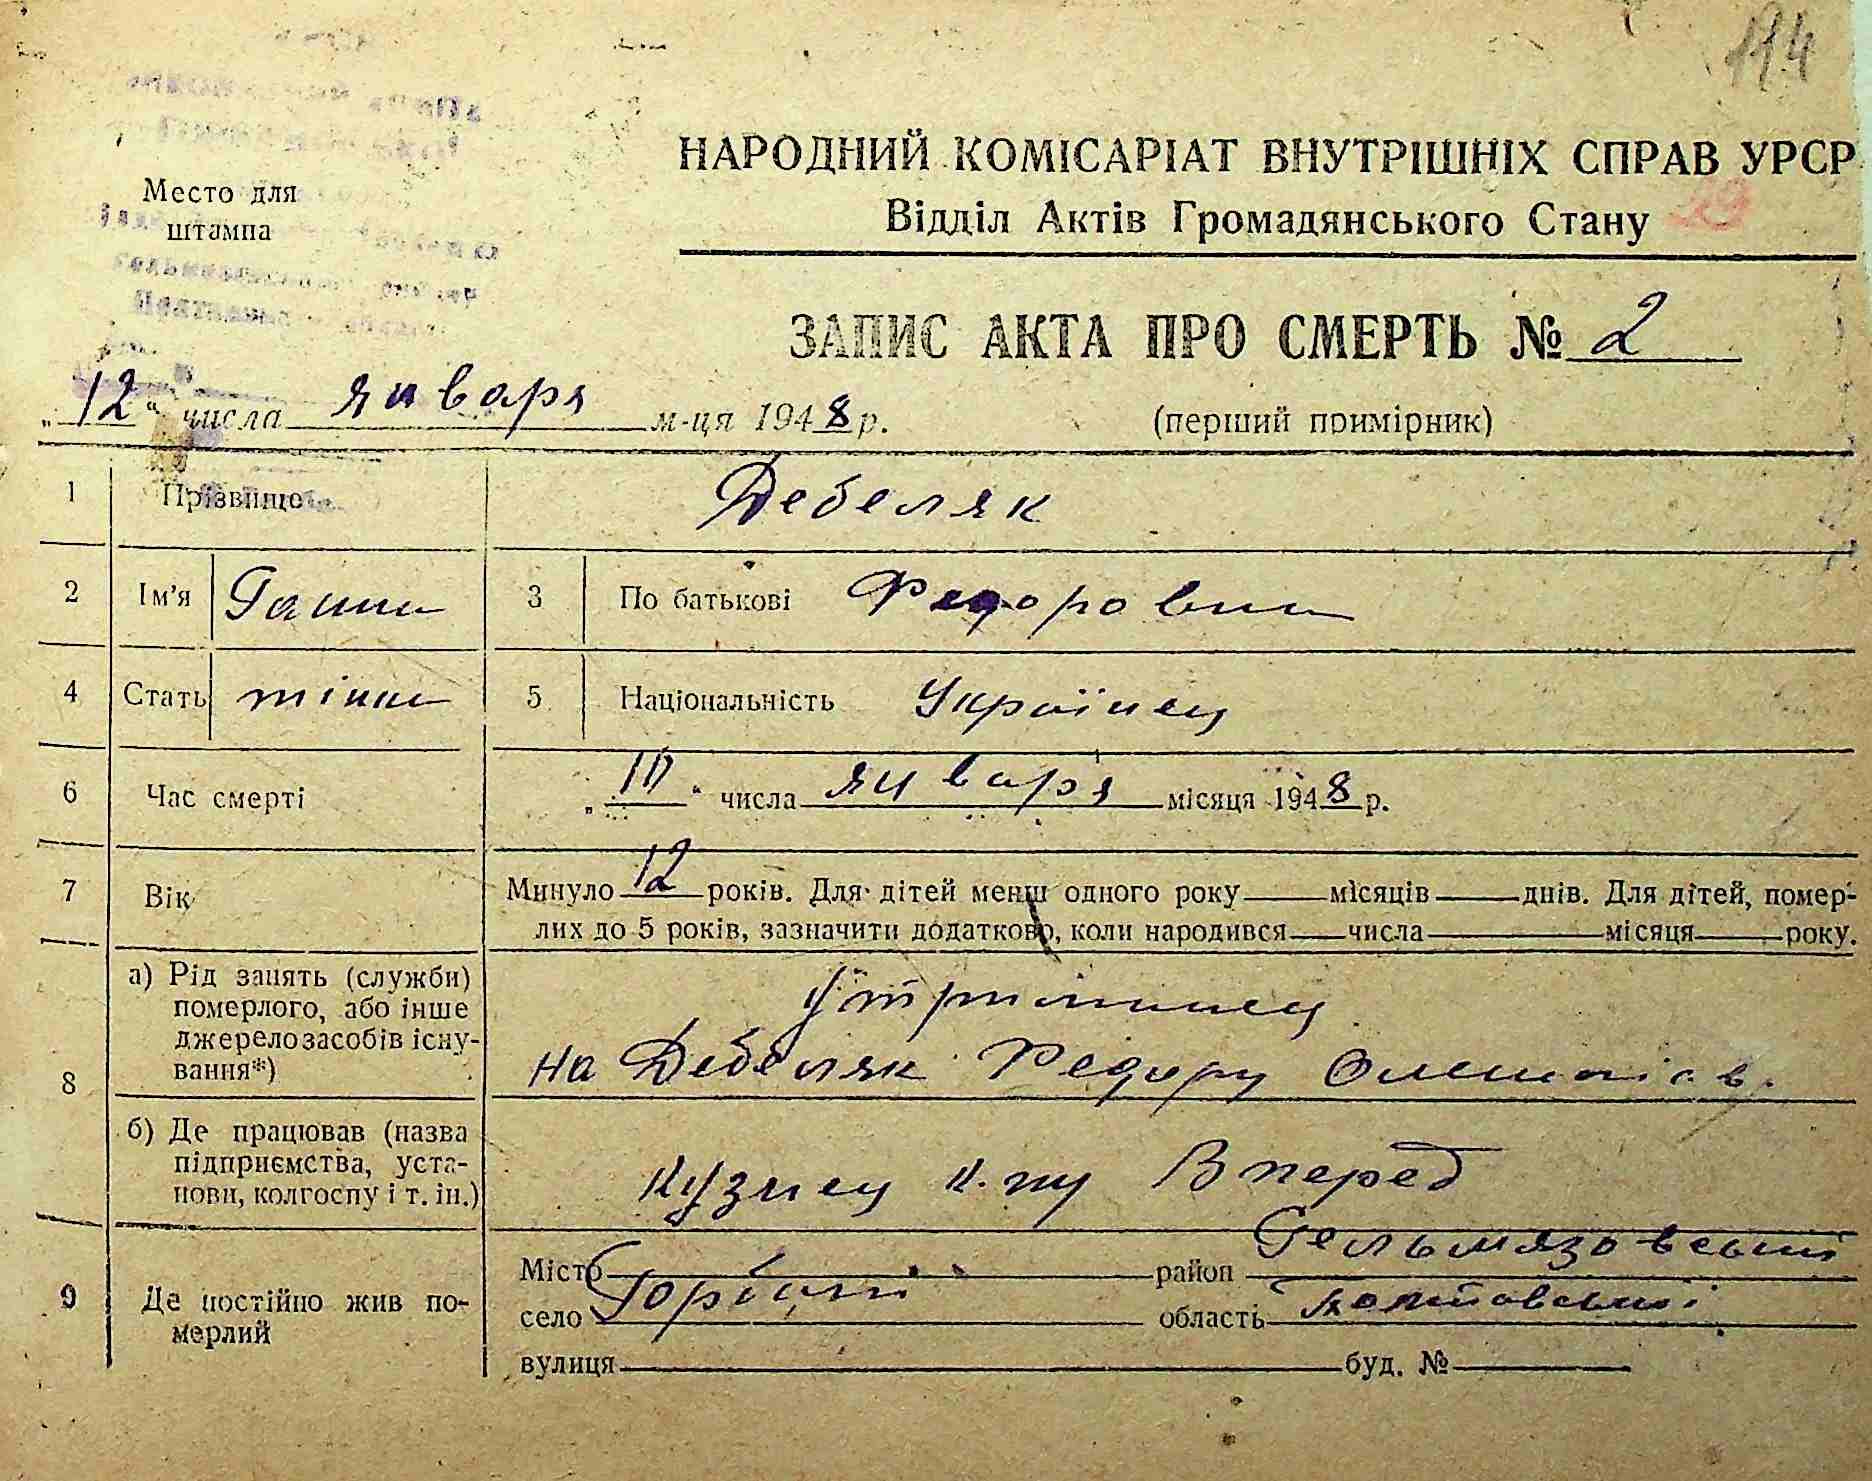 114
НАРОДНИЙ КОМІСАРІАТ ВНУТРІШНІХ СПРАВ УРСР
Відділ Актів Громадянського Стану
29
Место для
штампа
ЗАПИС АКТА ПРО СМЕРТЬ № 2
„12“ числа января м-ця 1948 р.
(перший примірник)
1 Прізвище Дебеляк
2 Ім'я Ганна 3 По батькові Федоровна
4 Стать жінка 5 Національність Українец
6 Час смерті „10“ числа января місяця 1948 р.
7 Вік Минуло 12 років. Для дітей менш одного року — місяців — днів. Для дітей, помер-
лих до 5 років, зазначити додатково, коли народився — числа — місяця — року.
8 а) Рід занять (служби)
померлого, або інше
джерело засобів існу-
вання*)
Утриманец
на Дебеляк Федору
б) Де працював (назва
підприємства, уста-
нови, колгоспу і т. ін.)
Кузнец к-пу Вперед
9 Де постійно жив по-
мерлий
Місто район Гельмязовський
село Горбані область Полтавської
вулиця буд. №